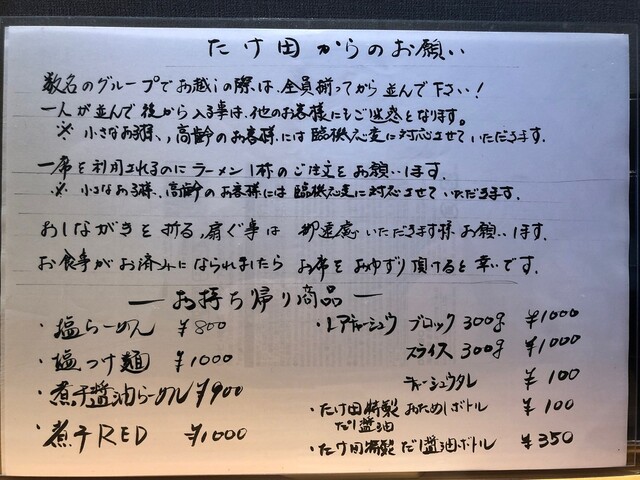 たけ田からのお願い
数名のグループでお越しの際は、全員揃ってから並んで下さい!
一人が並んで後から入る事は、他のお客様にもご迷惑となります。
※小さなお子様、高齢のお客様には臨機応変に対応させていただきます。
一席を利用されるのにラーメン1杯のご注文をお願いします。
※小さなお子様、高齢のお客様には臨機応変に対応させていただきます。
おしながきを折る、扇ぐ事は御遠慮いただきます様お願いします。
お食事がお済みになられましたらお席をおゆずり頂けると幸いです。
ーお持ち帰り商品ー
・塩らーめん ¥800
・塩つけ麺 ¥1000
・煮干醤油らーめん ¥900
・煮干RED ¥1000
・レアチャーシュウ ブロック 300g ¥1000
スライス 300g ¥1000
チャーシュウタレ ¥100
・たけ田特製だし醤油 おためしボトル ¥100
・たけ田特製だし醤油ボトル ¥350